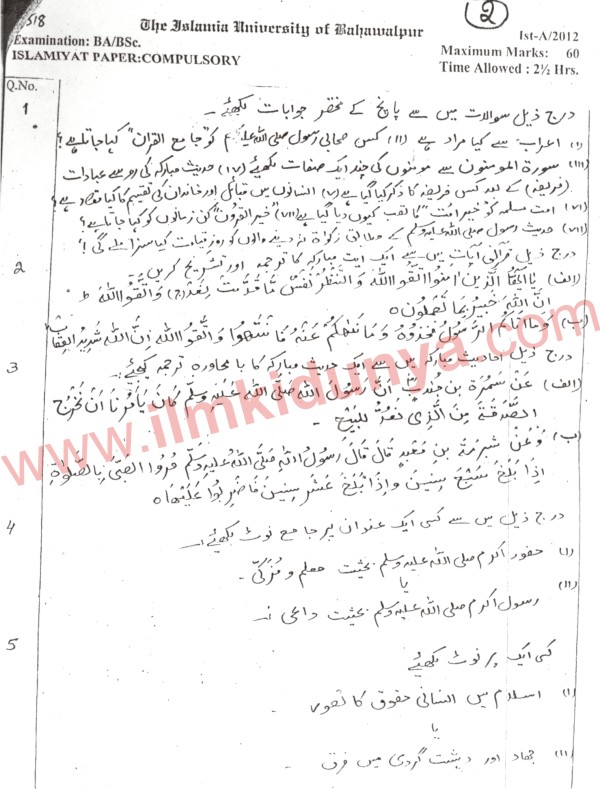 518
2
The Islamia University of Bahawalpur
Ist-A/2012
Examination: BA/BSc.
Maximum Marks: 60
ISLAMIYAT PAPER:COMPULSORY
Time Allowed : 2½ Hrs.
Q.No.
1
درج ذیل سوالات میں سے پانچ کے مختصر جوابات لکھئے۔
(i) اعراب سے کیا مراد ہے (ii) کس صحابی رسول صلی اللہ علیہ وسلم کو "جامع القرآن" کہا جاتا ہے؟
(iii) سورۃ المومنون سے مومنوں کی چند ایک صفات لکھئے (iv) حدیث مبارکہ کی رو سے عبادات
(فریضہ) کے بعد کس فریضہ کا ذکر کیا گیا ہے (v) انسانوں میں قبائل اور خاندان کی تقسیم کا کیا مقصد ہے؟
(vi) امت مسلمہ کو خیر امت" کا لقب کیوں دیا گیا ہے (vii) "خیر القرون" کن زمانوں کو کہا جاتا ہے؟
(vii) حدیث رسول صلی اللہ علیہ وسلم کے مطابق زکوٰۃ نہ دینے والوں کو روز قیامت کیا سزا ملے گی؟
2
درج ذیل قرآنی آیات میں سے ایک آیت مبارکہ کا ترجمہ اور تشریح کریں۔
(الف) یٰاَیُّهَا الَّذِیْنَ اٰمَنُوا اتَّقُوا اللهَ وَالْتَنْظُرْ نَفْسٌ مَّا قَدَّمَتْ لِغَدٍ (ج) وَاتَّقُوا اللهَ ط
اِنَّ اللهَ خَبِیْرٌ بِمَا تَعْمَلُوْنَ ○
(ب) وَمَا اٰتٰکُمُ الرَّسُوْلُ فَخُذُوْهُ وَمَا نَهٰکُمْ عَنْهُ فَانْتَهُوْا وَاتَّقُوا اللهَ اِنَّ اللهَ شَدِیْدُ الْعِقَابِ
3
درج ذیل احادیث مبارکہ میں سے ایک حدیث مبارکہ کا با محاورہ ترجمہ کیجئے۔
(الف) عَنْ سَمُرَةَ بِن جُنْدُبٍ اَنَّ رَسُوْلَ اللهِ صَلَّی اللهُ عَلَیْهِ وَسَلَّمَ کَانَ یَأْمُرُنَا اَنْ نُخْرِجَ
الصَّدَقَةَ مِنَ الَّذِیْ نَعُدُّ لِلْبَیْعِ ۔
(ب) وَعَنْ سَبْرَةَ بِنِ مَعْبَدٍ قَالَ قَالَ رَسُوْلُ اللهِ صَلَّی اللهُ عَلَیْهِ وَسَلَّمَ مُرُوا الصَّبِیَّ بِالصَّلوٰةِ
اِذَا بَلَغَ سَبْعَ سِنِیْنَ وَاِذَا بَلَغَ عَشَرَ سِنِیْنَ فَاضْرِبُوْا عَلَیْهَا ○
4
درج ذیل میں سے کسی ایک عنوان پر جامع نوٹ لکھئے۔
(i) حضور اکرم صلی اللہ علیہ وسلم بحیثیت معلم و مُزَکّی ۔
یا
(ii) رسول اکرم صلی اللہ علیہ وسلم بحیثیت داعی
5
کسی ایک پر نوٹ لکھئے
(i) اسلام میں انسانی حقوق کا تصور
یا
(ii) جہاد اور دہشت گردی میں فرق ۔
www.ilmkidunya.com